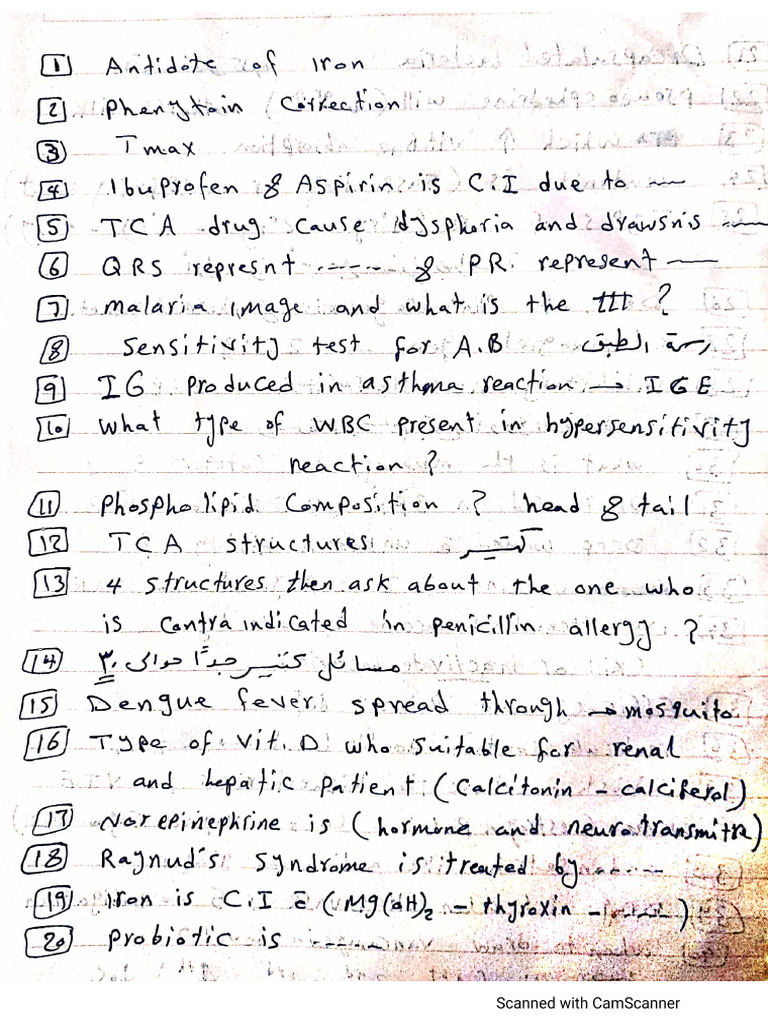 1 Antidote of Iron
2 Phenytoin Correction
3 Tmax
4 Ibuprofen & Aspirin is C.I due to
5 TCA drug cause dysphoria and drawsnis
6 QRS represnt ------ & PR. represent
7 malaria image and what is the ttt ?
8 sensitivity test for A.B رسمة الطبق
9 IG produced in asthma reaction → IGE
10 What type of WBC present in hypersensitivity
reaction ?
11 Phospholipid Composition ? head & tail
12 TCA structures كتير
13 4 structures then ask about the one who
is contraindicated in penicillin allergy ?
14 مسائل كتير جدًا حوالى ٣٠
15 Dengue fever spread through → mosquito
16 Type of Vit. D who suitable for renal
and hepatic patient (Calcitonin - calciferol)
17 Norepinephrine is (hormone and neurotransmitr)
18 Raynud's Syndrome is treated by
19 Iron is C.I c̄ (Mg(OH)2 - thyroxin - )
20 Probiotic is -------
Scanned with CamScanner